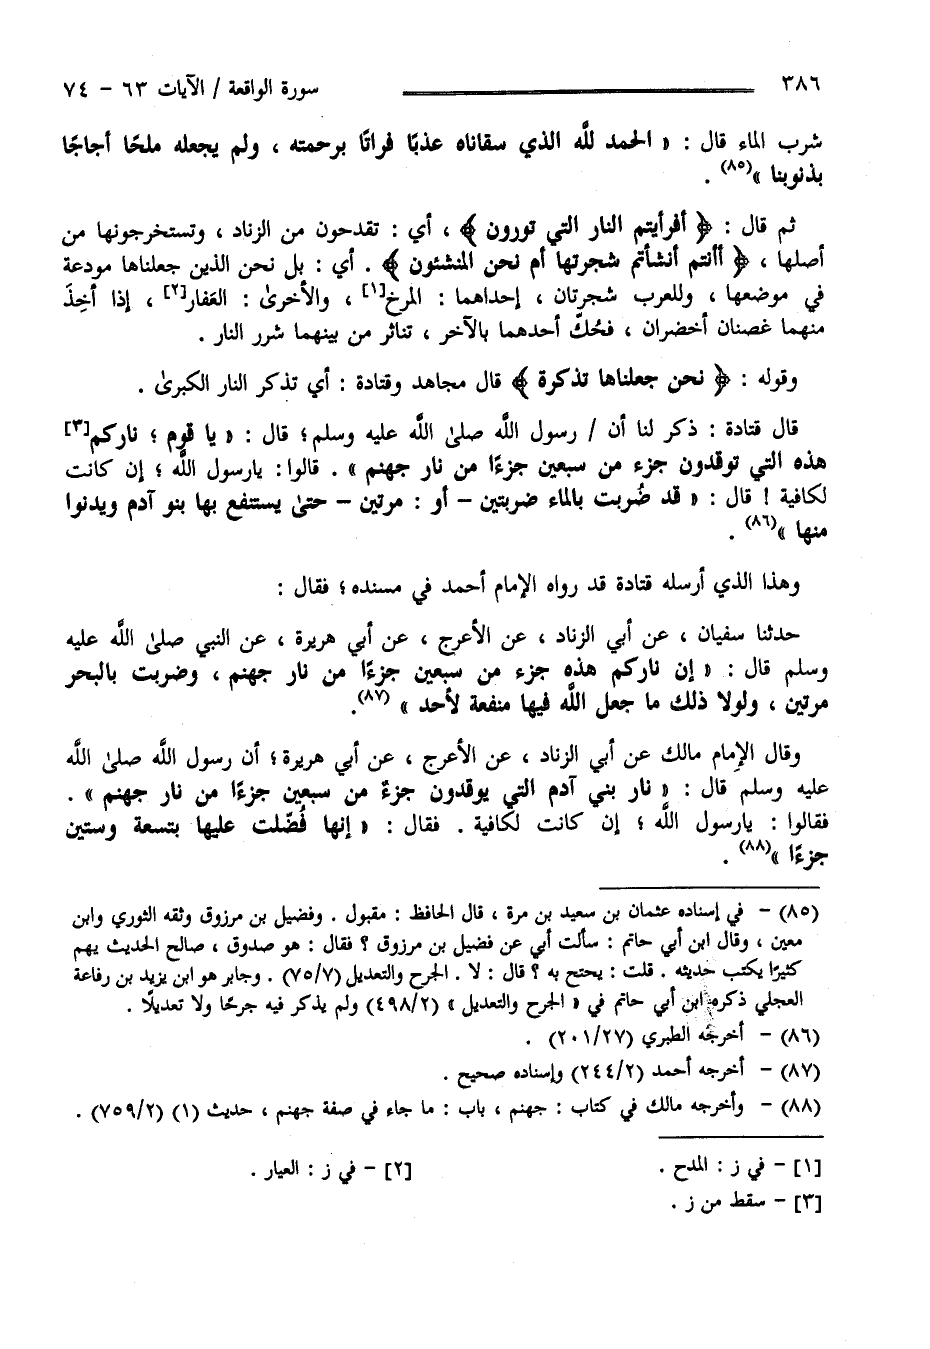 ٣٨٦
سورة الواقعة / الآيات ٦٣ - ٧٤
شرب الماء قال : « الحمد للَّه الذي سقاناه عذبًا فراتًا برحمته ، ولم يجعله ملحًا أجاجًا
بذنوبنا »(٨٥) .
ثم قال : ﴿ أفرأيتم النار التي تورون ﴾ ، أي : تقدحون من الزناد ، وتستخرجونها من
أصلها ، ﴿ أأنتم أنشأتم شجرتها أم نحن المنشئون ﴾ . أي : بل نحن الذين جعلناها مودعة
في موضعها ، وللعرب شجرتان ، إحداهما : المرخ[١] ، والأخرىٰ : العَفار[٢] ، إذا أُخِذَ
منهما غصنان أخضران ، فحُكَّ أحدهما بالآخر ، تناثر من بينهما شرر النار .
وقوله : ﴿ نحن جعلناها تذكرة ﴾ قال مجاهد وقتادة : أي تذكر النار الكبرىٰ .
قال قتادة : ذكر لنا أن / رسول اللَّه صلىٰ اللَّه عليه وسلم؛ قال : « يا قوم ؛ ناركم[٣]
هذه التي توقدون جزء من سبعين جزءًا من نار جهنم » . قالوا: يارسول اللَّه ؛ إن كانت
لكافية ! قال : « قد ضُربت بالماء ضربتين – أو : مرتين – حتىٰ يستنفع بها بنو آدم ويدنوا
منها »(٨٦) .
وهذا الذي أرسله قتادة قد رواه الإمام أحمد في مسنده؛ فقال :
حدثنا سفيان ، عن أبي الزناد ، عن الأعرج ، عن أبي هريرة ، عن النبي صلىٰ اللَّه عليه
وسلم قال : « إن ناركم هذه جزء من سبعين جزءًا من نار جهنم ، وضربت بالبحر
مرتين ، ولولا ذلك ما جعل اللَّه فيها منفعة لأحد » (٨٧).
وقال الإمام مالك عن أبي الزناد ، عن الأعرج ، عن أبي هريرة؛ أن رسول اللَّه صلىٰ اللَّه
عليه وسلم قال : « نار بني آدم التي يوقدون جزءٌ من سبعين جزءًا من نار جهنم » .
فقالوا : يارسول اللَّه ؛ إن كانت لكافية . فقال : « إنها فُضّلت عليها بتسعة وستين
جزءًا »(٨٨) .
(٨٥) – في إسناده عثمان بن سعيد بن مرة ، قال الحافظ : مقبول . وفضيل بن مرزوق وثقه الثوري وابن
معين ، وقال ابن أبي حاتم : سألت أبي عن فضيل بن مرزوق ؟ فقال : هو صدوق ، صالح الحديث يهم
كثيرًا يكتب حديثه . قلت : يحتج به ؟ قال : لا . الجرح والتعديل (٧٥/٧) . وجابر هو ابن يزيد بن رفاعة
العجلي ذكره ابن أبي حاتم في « الجرح والتعديل » (٤٩٨/٢) ولم يذكر فيه جرحًا ولا تعديلًا .
(٨٦) – أخرجه الطبري (٢٠١/٢٧) .
(٨٧) – أخرجه أحمد (٢٤٤/٢) وإسناده صحيح .
(٨٨) – وأخرجه مالك في كتاب : جهنم ، باب : ما جاء في صفة جهنم ، حديث (١) (٧٥٩/٢) .
[١] – في ز : المدح .
[٢] – في ز : العيار .
[٣] – سقط من ز .